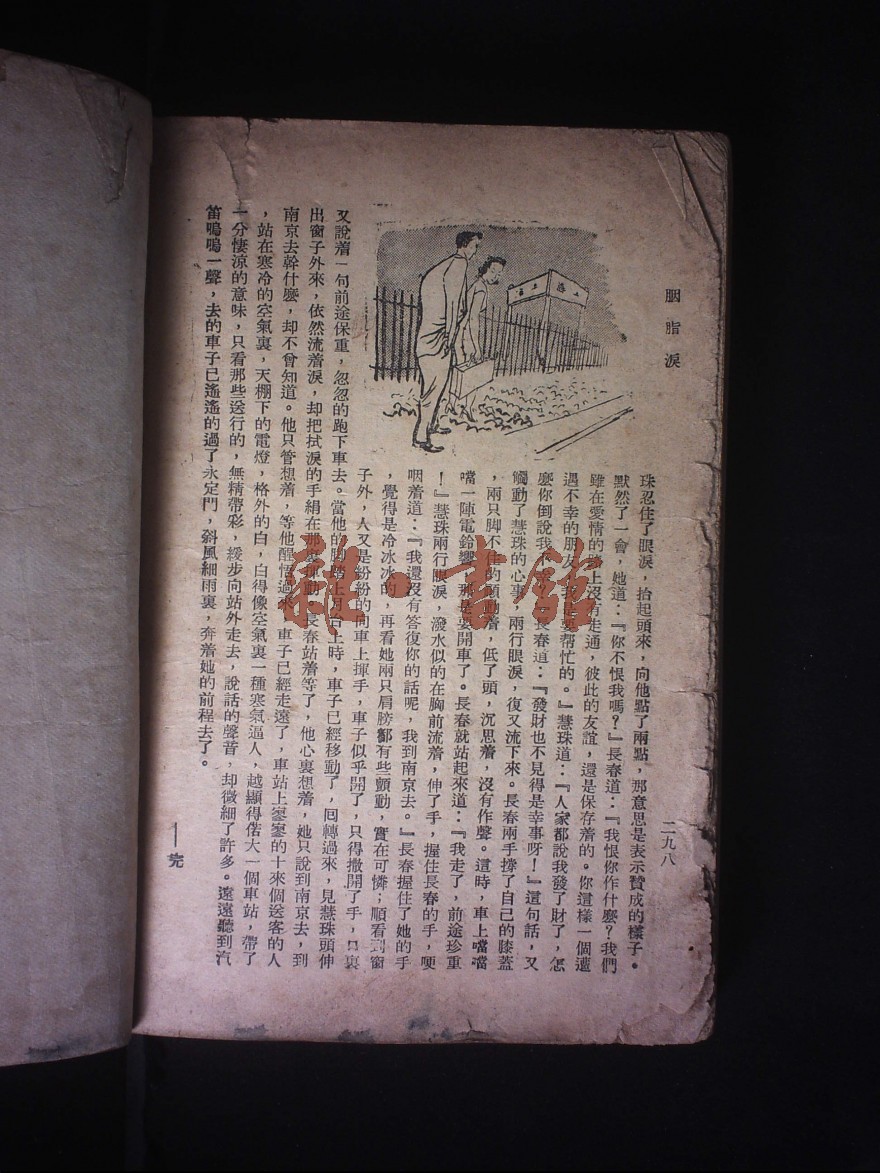 胭脂淚
二九八
珠忍住了眼淚，抬起頭來，向他點了兩點，那意思是表示贊成的樣子。
默然了一會，她道：『你不恨我嗎？』長春道：『我恨你作什麼？我們
雖在愛情的路上沒有走通，彼此的友誼，還是保存着的。你這樣一個遭
遇不幸的朋友，我是要帮忙的。』慧珠道：『人家都說我發了財了，怎
麼你倒說我 』長春道：『發財也不見得是幸事呀！』這句話，又
觸動了慧珠的心事，兩行眼淚，復又流下來。長春兩手撐了自己的膝蓋
，兩只脚不住的顫動着，低了頭，沉思着，沒有作聲。這時，車上噹噹
噹一陣電鈴響，那是要開車了。長春就站起來道：『我走了，前途珍重
！』慧珠兩行眼淚，潑水似的在胸前流着，伸了手，握住長春的手，哽
咽着道：『我還沒有答復你的話呢，我到南京去。』長春握住了她的手
，覺得是冷冰冰的，再看她兩只肩膀都有些顫動，實在可憐；順看到窗
子外，人又是紛紛的向車上揮手，車子似乎開了，只得撒開了手，口裏
又說着一句前途保重，忽忽的跑下車去。當他的脚踏上月台上時，車子已經移動了，囘轉過來，見慧珠頭伸
出窗子外來，依然流着淚，却把拭淚的手絹在那裏揮動。長春站着等了，他心裏想着，她只說到南京去，到
南京去幹什麼，却不曾知道。他只管想着，等他醒悟過來，車子已經走遠了，車站上寥寥的十來個送客的人
，站在寒冷的空氣裏，天棚下的電燈，格外的白，白得像空氣裏一種寒氣逼人，越顯得偌大一個車站，帶了
一分悽涼的意味，只看那些送行的，無精帶彩，緩步向站外走去，說話的聲音，却微細了許多。遠遠聽到汽
笛嗚嗚一聲，去的車子已遙遙的過了永定門，斜風細雨裏，奔着她的前程去了。
——完
雜·書館